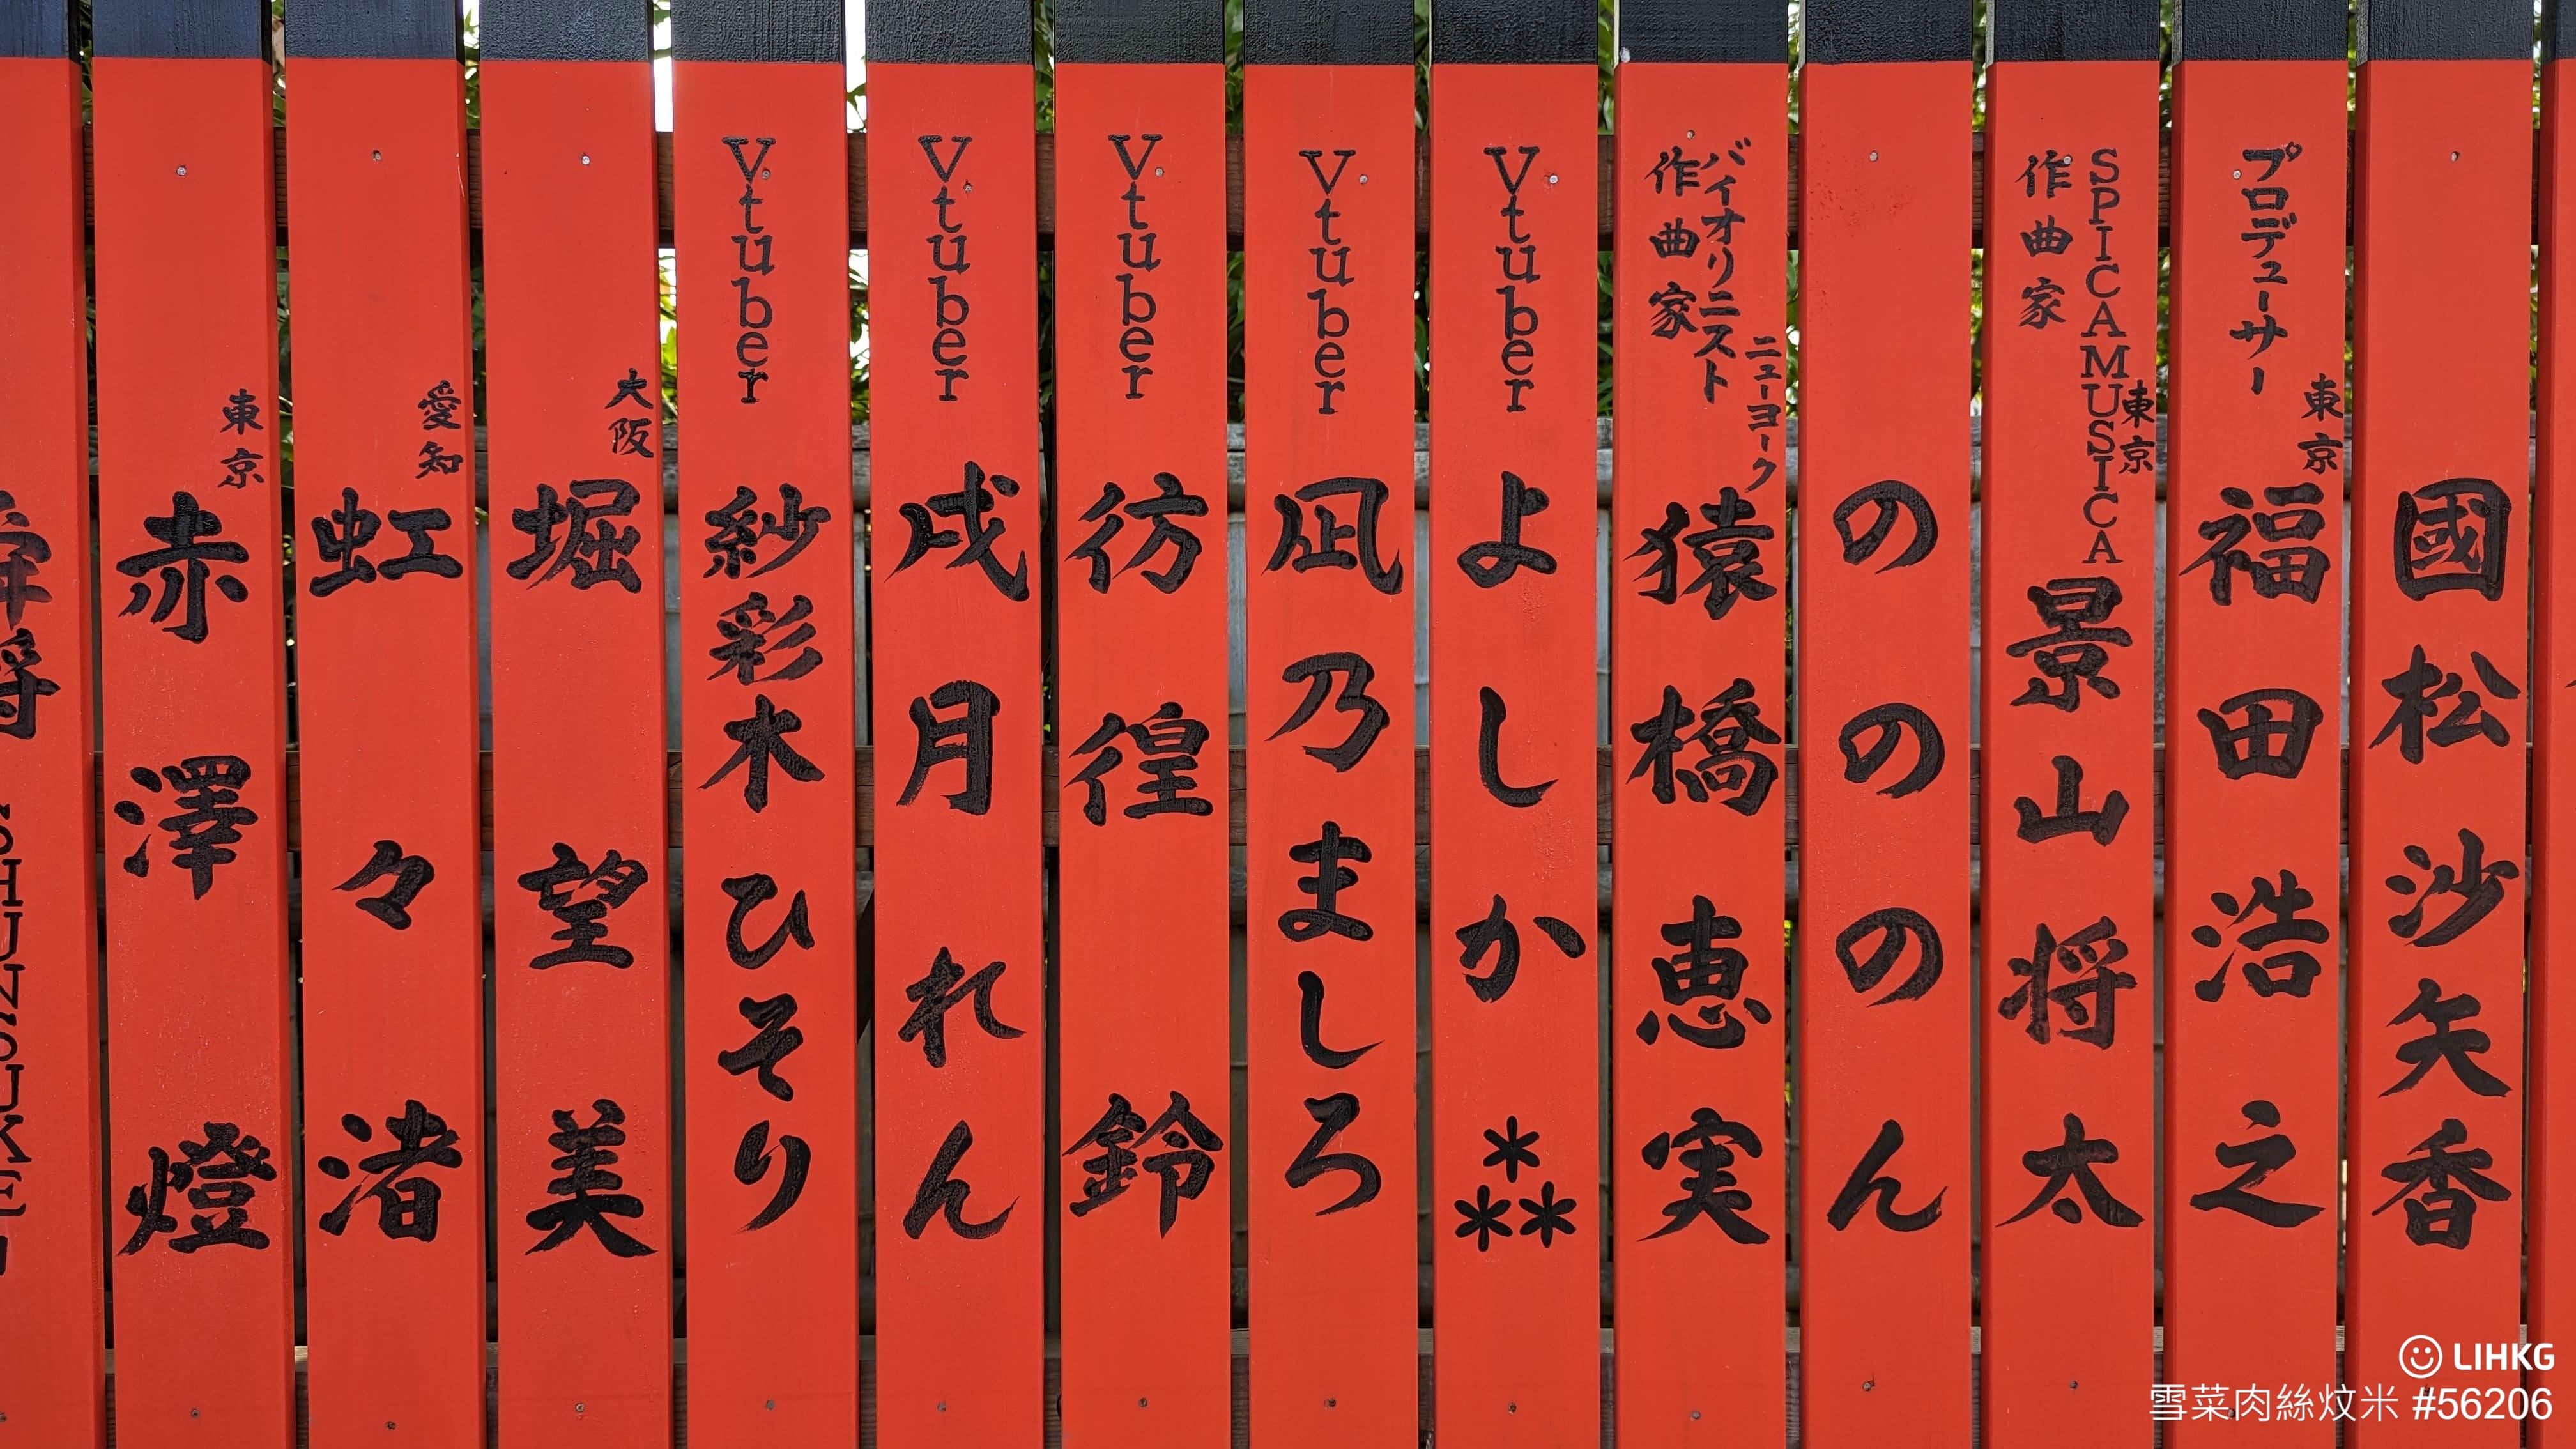 國松沙矢香
プロデューサー
東京
福田浩之
SPICAMUSICA
作曲家
東京
景山将太
のののん
バイオリニスト
作曲家
ニューヨーク
猿橋恵実
Vtuber
よしか⁂
Vtuber
凪乃ましろ
Vtuber
彷徨鈴
Vtuber
戌月れん
Vtuber
紗彩木ひそり
大阪
堀望美
愛知
虹々渚
東京
赤澤燈
LIHKG
雪菜肉絲炆米 #56206